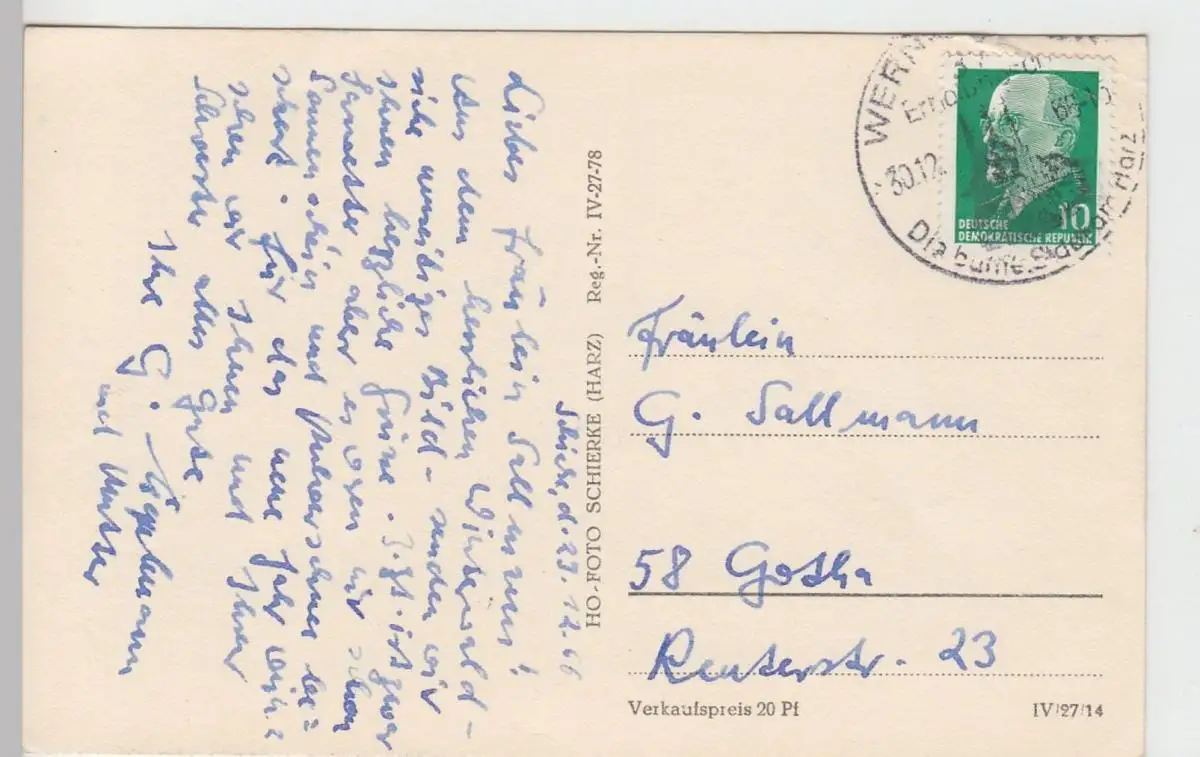 Schierke, d. 29.12.66
Liebes Fräulein Sallmann!
Aus dem herrlichen Winterwald-
siehe umseitiges Bild - senden wir
Ihnen herzliche Grüße. Z. Zt. ist zwar
Tauwetter aber es waren wir schon
Sonnenschein und Pulverschnee be=
schert. Für das neue Jahr wün=
schen wir Ihnen und Ihrer
Schwester alles Gute
Ihre G.
und Mutter
HO-FOTO SCHIERKE (HARZ) Reg.-Nr. IV-27-78
WERN
30.12.
Die bunte Stadt am Harz
DEUTSCHE
DEMOKRATISCHE REPUBLIK
10
Fräulein
G. Sallmann
58 Gotha
Reuterstr. 23
Verkaufspreis 20 Pf
IV/27/14